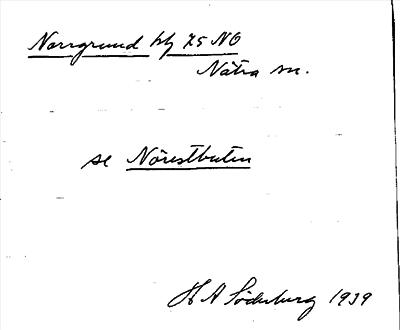 Norrgrund bf 75 NO
Nätra sn.
se Nörestbuten
H A Söderburg 1939